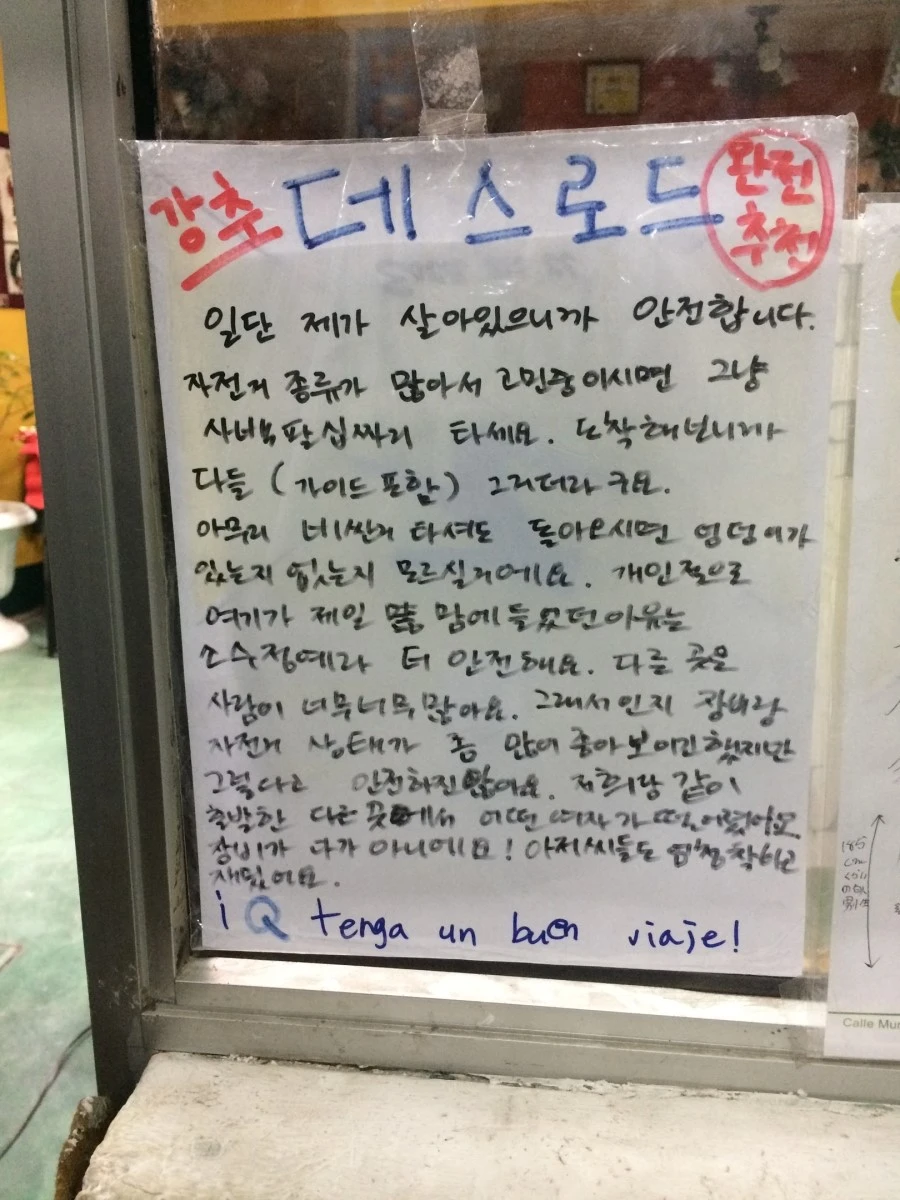 강추 데스로드 완전 추천
일단 제가 살아있으니까 안전합니다.
자전거 종류가 많아서 고민중이시면 그냥
사백팔십짜리 타세요. 도착해보니까
다들 (가이드 포함) 그거더라구요.
아무리 비싼거 타셔도 돌아오시면 엉덩이가
있는지 없는지 모르실거에요. 개인적으로
여기가 제일 맘에 들었던 이유는
소수정예라 더 안전해요. 다른 곳은
사람이 너무너무 많아요. 그래서인지 장비랑
자전거 상태가 좀 많이 좋아보이긴 했지만
그렇다고 안전하진 않아요. 저희랑 같이
출발한 다른 곳에서 어떤 여자가 떨어졌어요
장비가 다가 아니에요! 아저씨들도 엄청 착하고
재밌어요.
¡Q tenga un buen viaje!
185
cm
Calle Mur